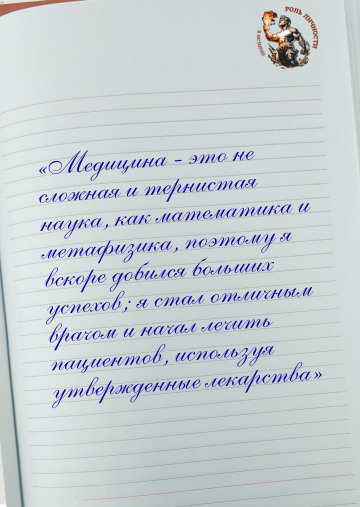 РОЛЬ ЛИЧНОСТИ
В ИСТОРИИ
«Медицина – это не
сложная и тернистая
наука, как математика и
метафизика, поэтому я
вскоре добился больших
успехов; я стал отличным
врачом и начал лечить
пациентов, используя
утвержденные лекарства»